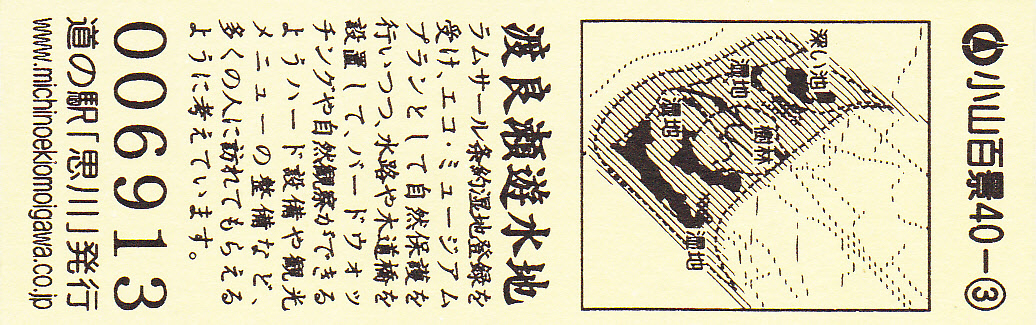 小山百景40-③
深い池
湿地
樹林
湿地
湿地
渡良瀬遊水地
ラムサール条約湿地登録を
受け、エコ・ミュージアム
プランとして自然保護を
行いつつ、水路や木道橋を
設置して、バードウォッ
チングや自然観察ができる
ようハード設備や観光
メニューの整備など、
多くの人に訪れてもらえる
ように考えています。
006913
道の駅「思川」発行
www.michinoekiomoigawa.co.jp